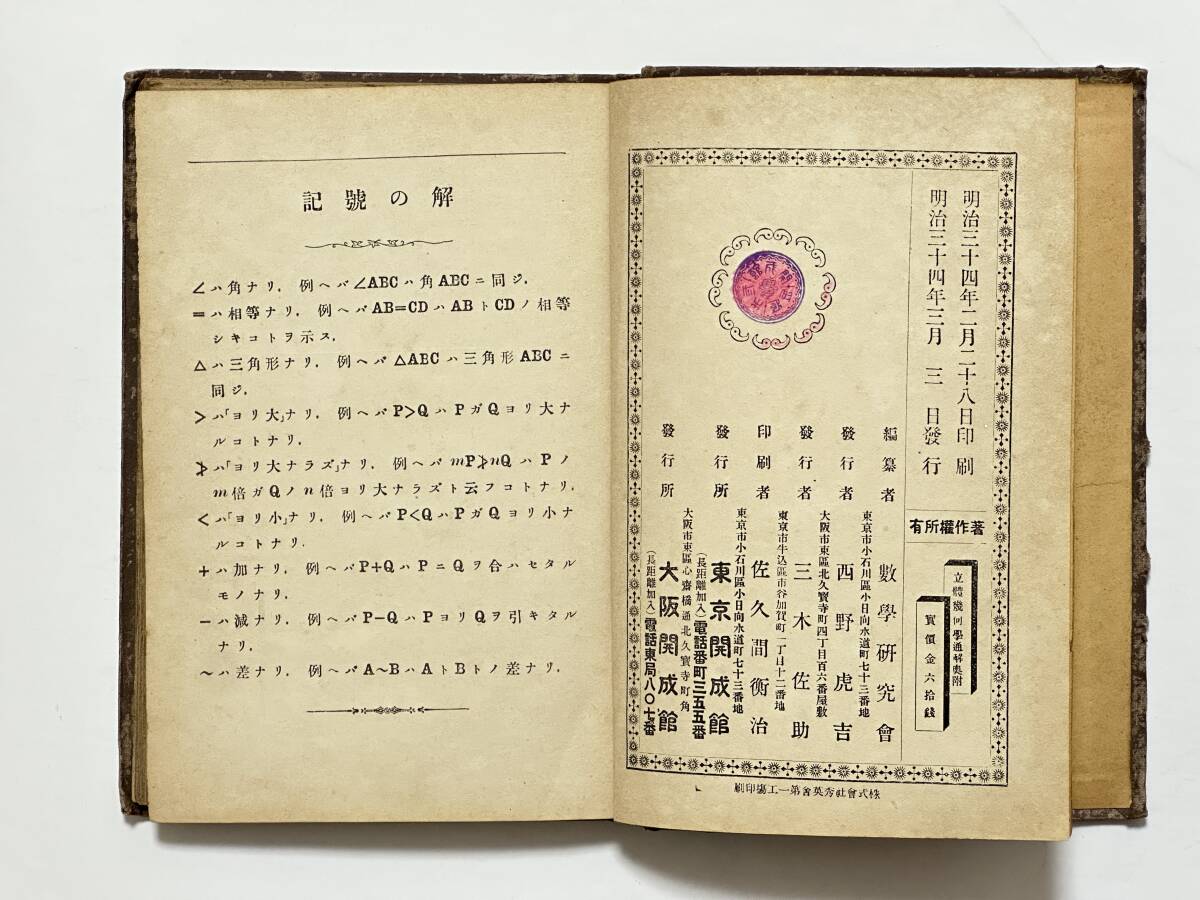 記號の解
∠ハ角ナリ．例ヘバ∠ABCハ角ABCニ同ジ．
＝ハ相等ナリ．例ヘバAB=CDハABトCDノ相等
シキコトヲ示ス．
△ハ三角形ナリ．例ヘバ△ABCハ三角形ABCニ
同ジ．
>ハ「ヨリ大」ナリ．例ヘバP>QハPガQヨリ大ナ
ルコトナリ．
≯ハ「ヨリ大ナラズ」ナリ．例ヘバmP≯nQハPノ
m倍ガQノn倍ヨリ大ナラズト云フコトナリ．
<ハ「ヨリ小」ナリ．例ヘバP<QハPガQヨリ小ナ
ルコトナリ．
+ハ加ナリ．例ヘバP+QハPニQヲ合ハセタル
モノナリ．
−ハ減ナリ．例ヘバP−QハPヨリQヲ引キタル
ナリ．
〜ハ差ナリ．例ヘバA〜BハAトBトノ差ナリ．
明治三十四年二月二十八日印刷
明治三十四年三月三日發行
著作權所有
立體幾何學通解奧附
實價金六拾錢
編纂者 數學研究會
東京市小石川區小日向水道町七十三番地
發行者 西野虎吉
大阪市東區北久寶寺町四丁目百六番屋敷
發行者 三木佐助
東京市牛込區市谷加賀町一丁目十二番地
印刷者 佐久間衡治
東京市小石川區小日向水道町七十三番地
發行所 東京開成館
（長距離加入）電話番町三五五番
大阪市東區心齋橋通北久寶寺町角
發行所 大阪開成館
（長距離加入）電話東局八〇七番
株式會社秀英舍第一工場印刷